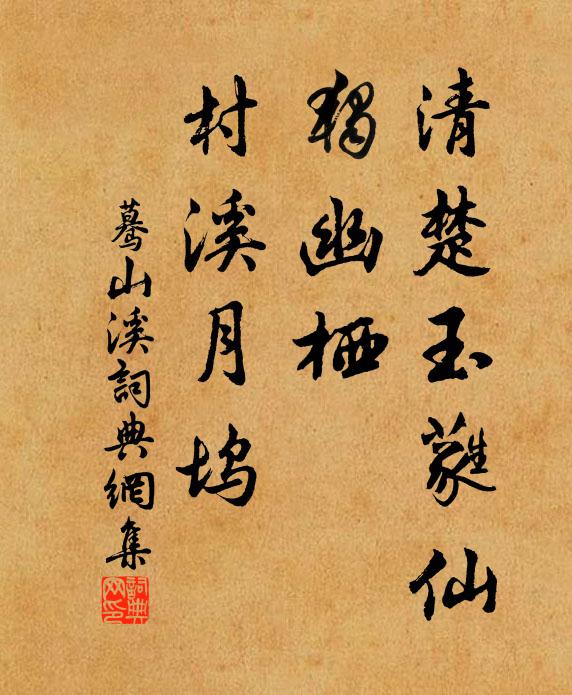 清楚玉蕤仙
獨幽栖
村溪月塢
驀山溪詞典網集
詞典网印